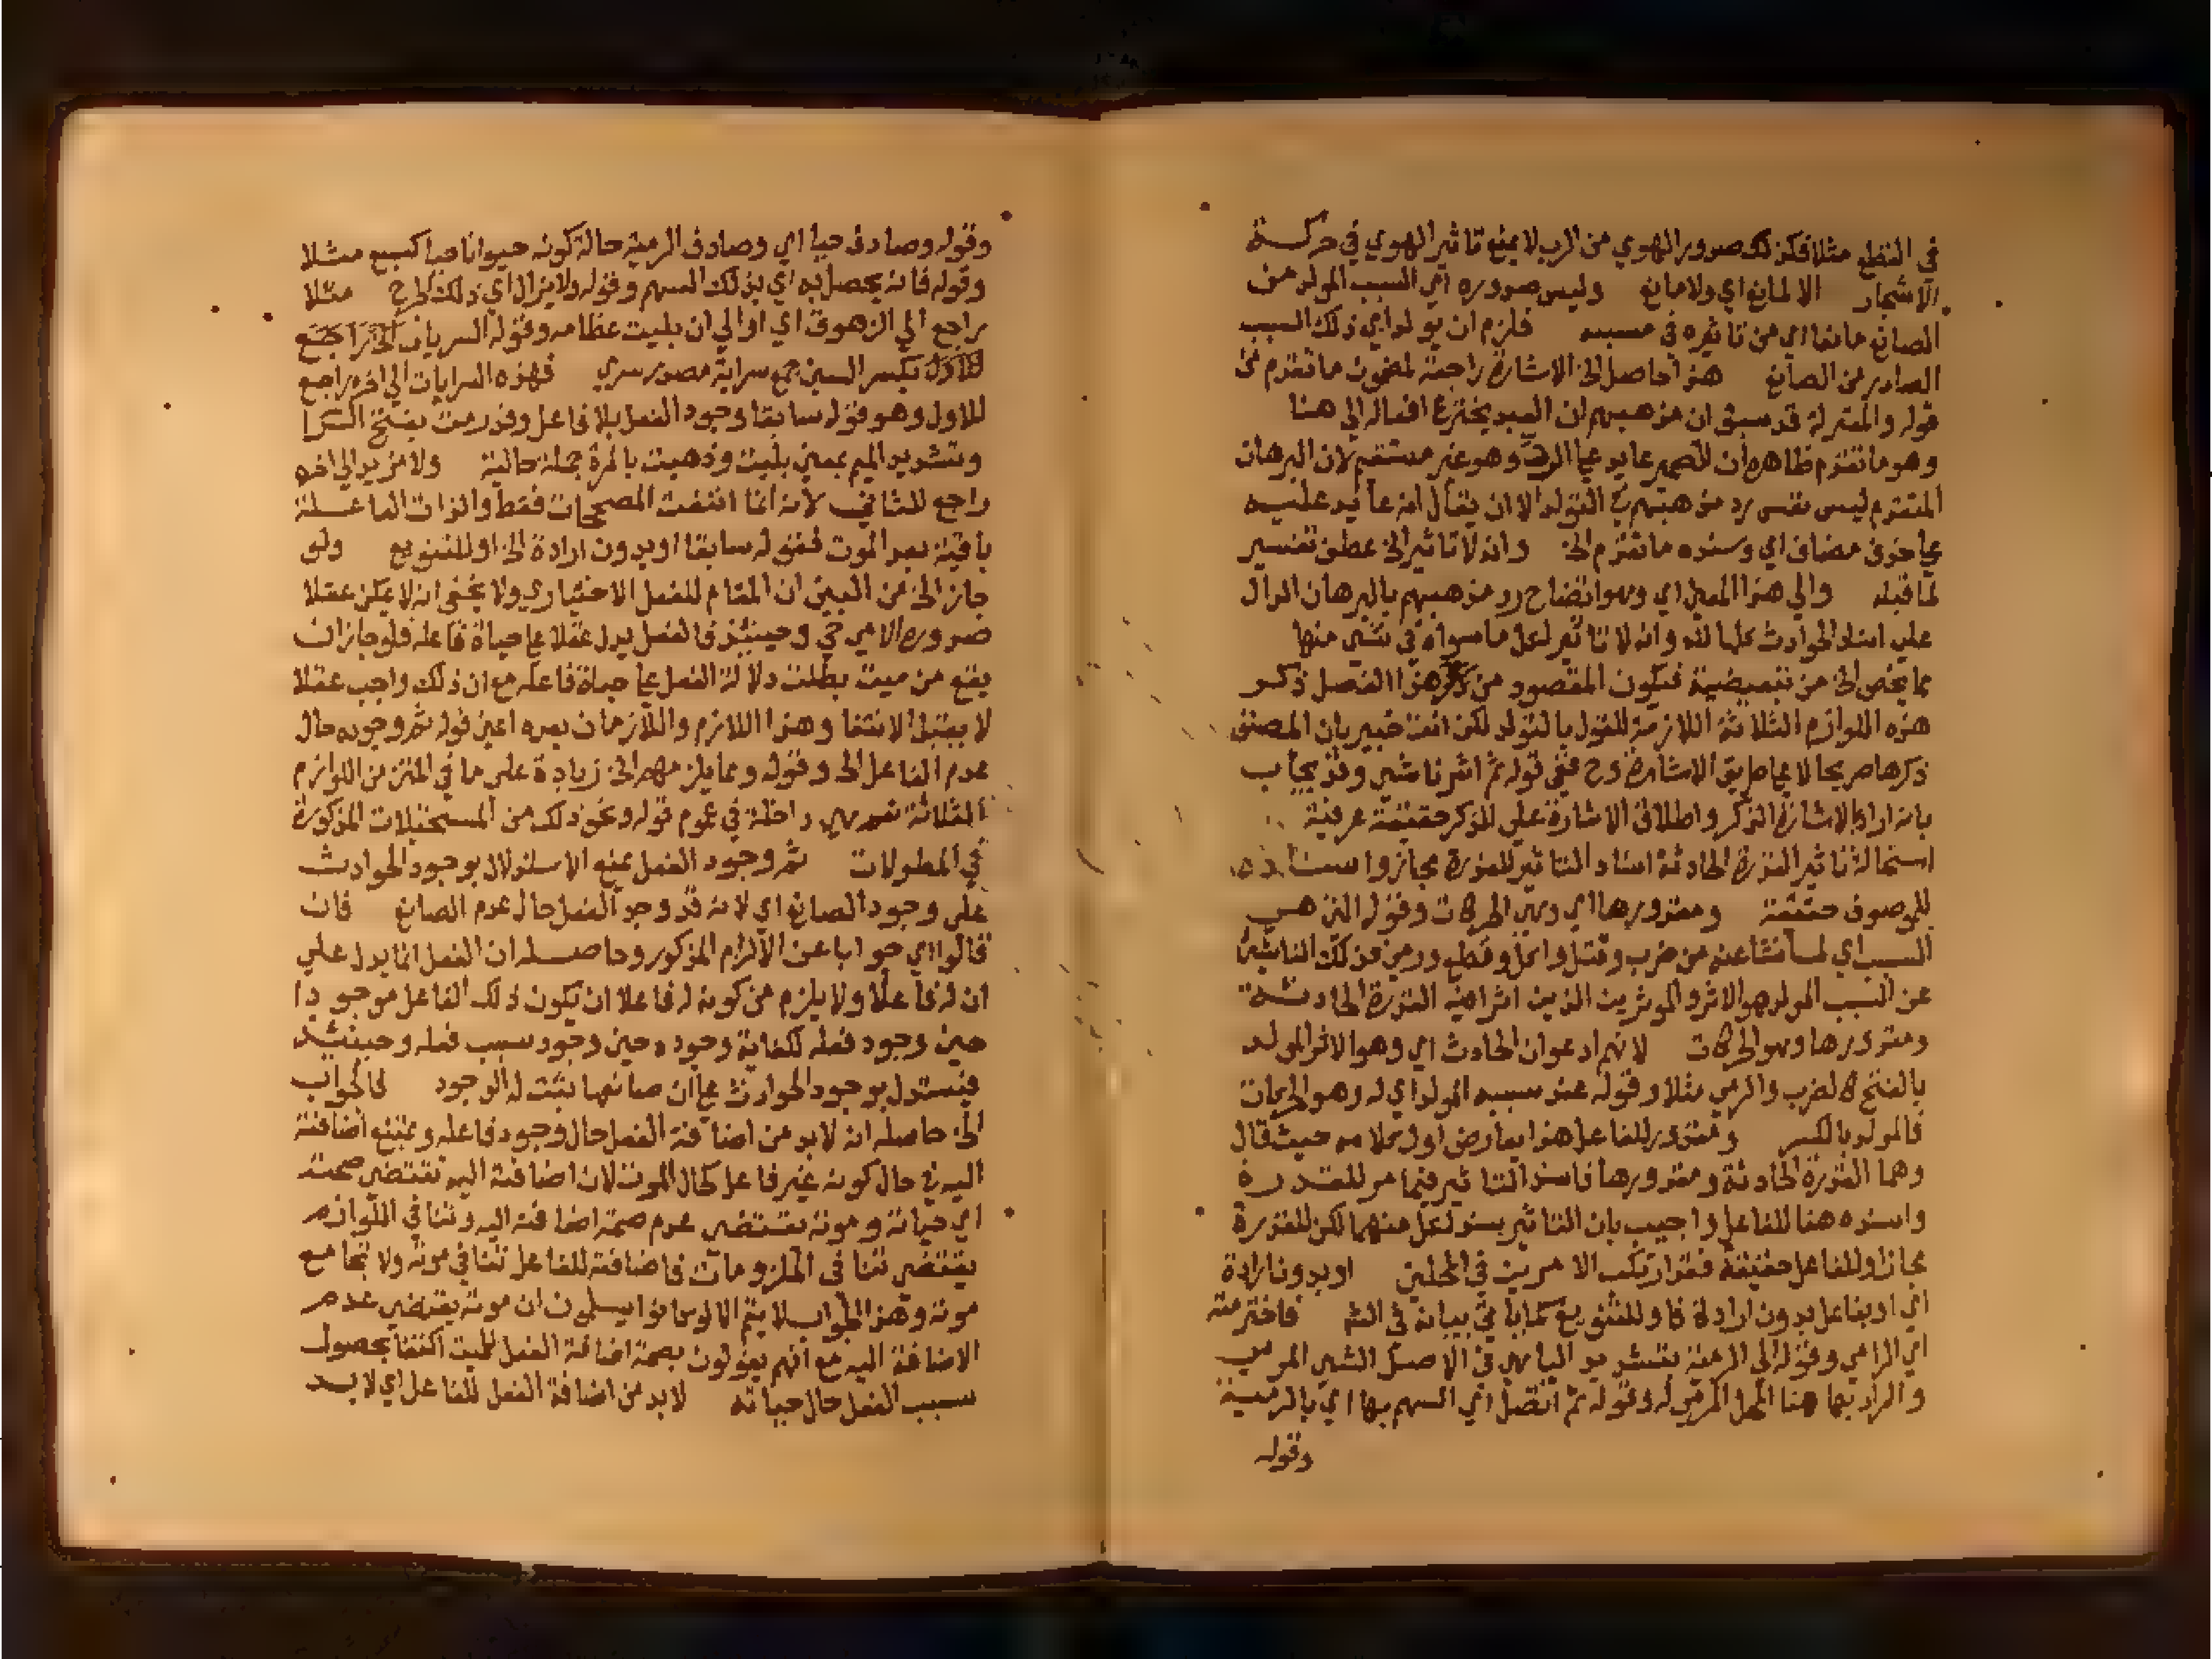 في القطع مثلا فكذلك صدور الهوي من الرب لا يمنع تاثير الهوي في حركة
الاشجار الا لمانع اي ولا مانع وليس صدوره اي السبب المولد من
الصانع مانعا اي من تاثيره في مسببه فلزم ان يولد اي ذلك السبب
الصادر من الصانع هذا حاصل الخ الاشارة راجعة لمضمون ما تقدم في
قوله والمعتزلة قد سبق ان مذهبهم ان العبد يخترع افعاله الي هنا
وهو ما تقدم ظاهره ان الضمير عايد علي الرد وهو غير مستقيم لان البرهان
المتقدم ليس نفس رد مذهبهم في التولد الا ان يقال انه عايد عليه
علي حذف مضاف اي وسنده ما تقدم الخ وانه لا تاثير الخ عطف تفسير
لما قبله والي هذا المعني اي وهو اتضاح رد مذهبهم بالبرهان الدال
علي اسناد الحوادث كلها لله وانه لا تاثير لكل ما سواه في شي منها
مما يخص الخ من تبعيضية فيكون المقصود من هذا الفصل ذكر
هذه اللوازم الثلاثة اللازمة للقول بالتولد لكن انت خبير بان المصنف
ذكرها صريحا لا علي طريق الاشارة وح ففي قوله ثم اشرنا شي وقد يجاب
بانه اراد بالاشارة الذكر واطلاق الاشارة علي الذكر حقيقة عرفية
استحالة تاثير القدرة الحادثة اسناد التاثير للقدرة مجاز واسناده
للموصوف حقيقة ومقدورها اي وهي الحركات وقوله التي هي
السبب اي لما نشا عنه من ضرب وقتل واكل وقطع ورمي فذلك الناشئ
عن السبب المولد هو الاثر والموثرين الذين اثرا فيه القدرة الحادثة
ومقدورها وهو الحركات لانهم ادعوا ان الحادث اي وهو الاثر المولد
بالفتح كالضرب والرمي مثلا وقوله عند سببه المولد اي له وهو الحركات
فالمولد بالكسر ومقدور للفاعل هذا يعارض اول كلامه حيث قال
وهما القدرة الحادثة ومقدورها فاسند التاثير فيما مر للقدرة
واسنده هنا للفاعل واجيب بان التاثير يسند لكل منهما لكن للقدرة
مجازا وللفاعل حقيقة فقد ارتكب الامرين في المحلين او بدون ارادة
اي او بفاعل بدون ارادة فاو للتنويع كما ياتي بيانه في الشر فاخترمته
اي الرامي وقوله الي الرمية بتشديد الياء هي في الاصل الشي المرمي
والمراد بها هنا المحل المرمي له وقوله ثم اتصل اي السهم بها اي بالرمية
وقوله
وقوله وصادف حيا اي وصادف الرمية حالة كونه حيوانا حيا كسبع مثلا
وقوله فانه يحصل به اي بذلك السهم وقوله ولا يزال اي ذلك الجرح مثلا
راجع الي الزهوق اي او الي ان بليت عظامه وقوله السريان الخ راجع
للاول بكسر السين جمع سراية مصدر سري فهذه السرايات الي اخره راجع
للاول وهو قوله سابقا وجود الفعل بلا فاعل وقد رمت بفتح الرا
وتشديد الميم بمعني بليت وذهبت بالمرة جملة حالية ولا مزيد الي اخره
راجع للثاني لانه انما انتفت المصححات فقط والذات الفاعلة
باقية بعد الموت فقوله سابقا او بدون ارادة الخ او للتنويع ولو
جاز الخ من البين ان المقام للفعل الاختياري ولا يخفي انه لا يمكن عقلا
صدوره الا من حي وحينئذ فالفعل يدل عقلا علي حياة فاعله فلو جاز ان
يقع من ميت بطلت دلالة الفعل علي حياة فاعله مع ان ذلك واجب عقلا
لا يقبل الانتفا وهذا اللازم واللازمان بعده اعني قوله ثم وجوده حال
عدم الفاعل الخ وقوله ومما يلزمهم الخ زيادة علي ما في المتن من اللوازم
الثلاثة نعم هي داخلة في عموم قوله ونحو ذلك من المستحيلات المذكورة
في المطولات ثم وجود الفعل يمنع الاستدلال بوجود الحوادث
علي وجود الصانع اي لانه قد وجد الفعل حال عدم الصانع فان
قالوا اي جوابا عن الالزام المذكور وحاصله ان الفعل انما يدل علي
ان له فاعلا ولا يلزم من كونه له فاعلا ان يكون ذلك الفاعل موجودا
حين وجود فعله لكفاية وجوده حين وجود سبب فعله وحينئذ
فيستدل بوجود الحوادث علي ان صانعها ثبت له الوجود فالجواب
الخ حاصله انه لا بد من اضافة الفعل حال وجود فاعله ويمتنع اضافته
اليه في حال كونه غير فاعل كحال الموت لان اضافته اليه تقتضي صحته
اي حياته وموته يقتضي عدم صحة اضافته اليه وتنافي اللوازم
يقتضي تنافي الملزومات فاضافته للفاعل تنافي موته ولا تجامع
موته وهذا الجواب لا يتم الا لو كانوا يسلمون ان موته يقتضي عدم
الاضافة اليه مع انهم يقولون بصحة اضافة الفعل للميت اكتفا بحصول
سبب الفعل حال حياته لا بد من اضافة الفعل للفاعل اي لا بد